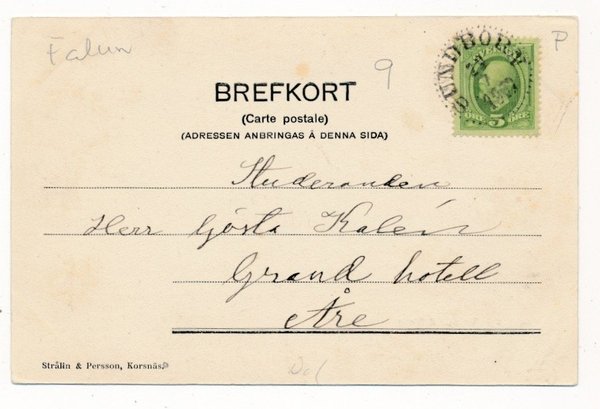 Falun
P
9
SUNDBORN
BREFKORT
(Carte postale)
(ADRESSEN ANBRINGAS Å DENNA SIDA)
5
Studeranden
Herr Gösta Kalén
Grand hotell
Åre
Strålin & Persson, Korsnäs.